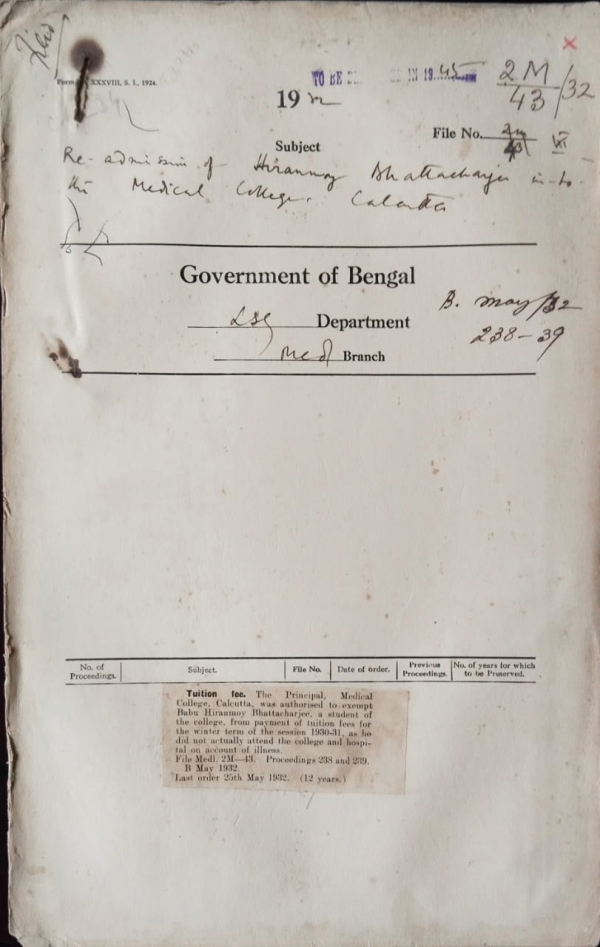 XXXVIII, S. I., 1924.
TO BE IN 19 45
2M
43/32
19 32
File No. 2M
43 VI
Subject
Re-admission of Hirannoy Bhattacharjee in-to
the Medical College, Calcutta
Government of Bengal
LSG Department
Med Branch
B. May/32
238-39
No. of Proceedings. Subject. File No. Date of order. Previous Proceedings. No. of years for which to be Preserved.
Tuition fee. The Principal, Medical
College, Calcutta, was authorised to exempt
Babu Hirannoy Bhattacharjee, a student of
the college, from payment of tuition fees for
the winter term of the session 1930-31, as he
did not actually attend the college and hospi-
tal on account of illness.
File Medl. 2M—43. Proceedings 238 and 239.
B May 1932.
Last order 25th May 1932. (12 years.)